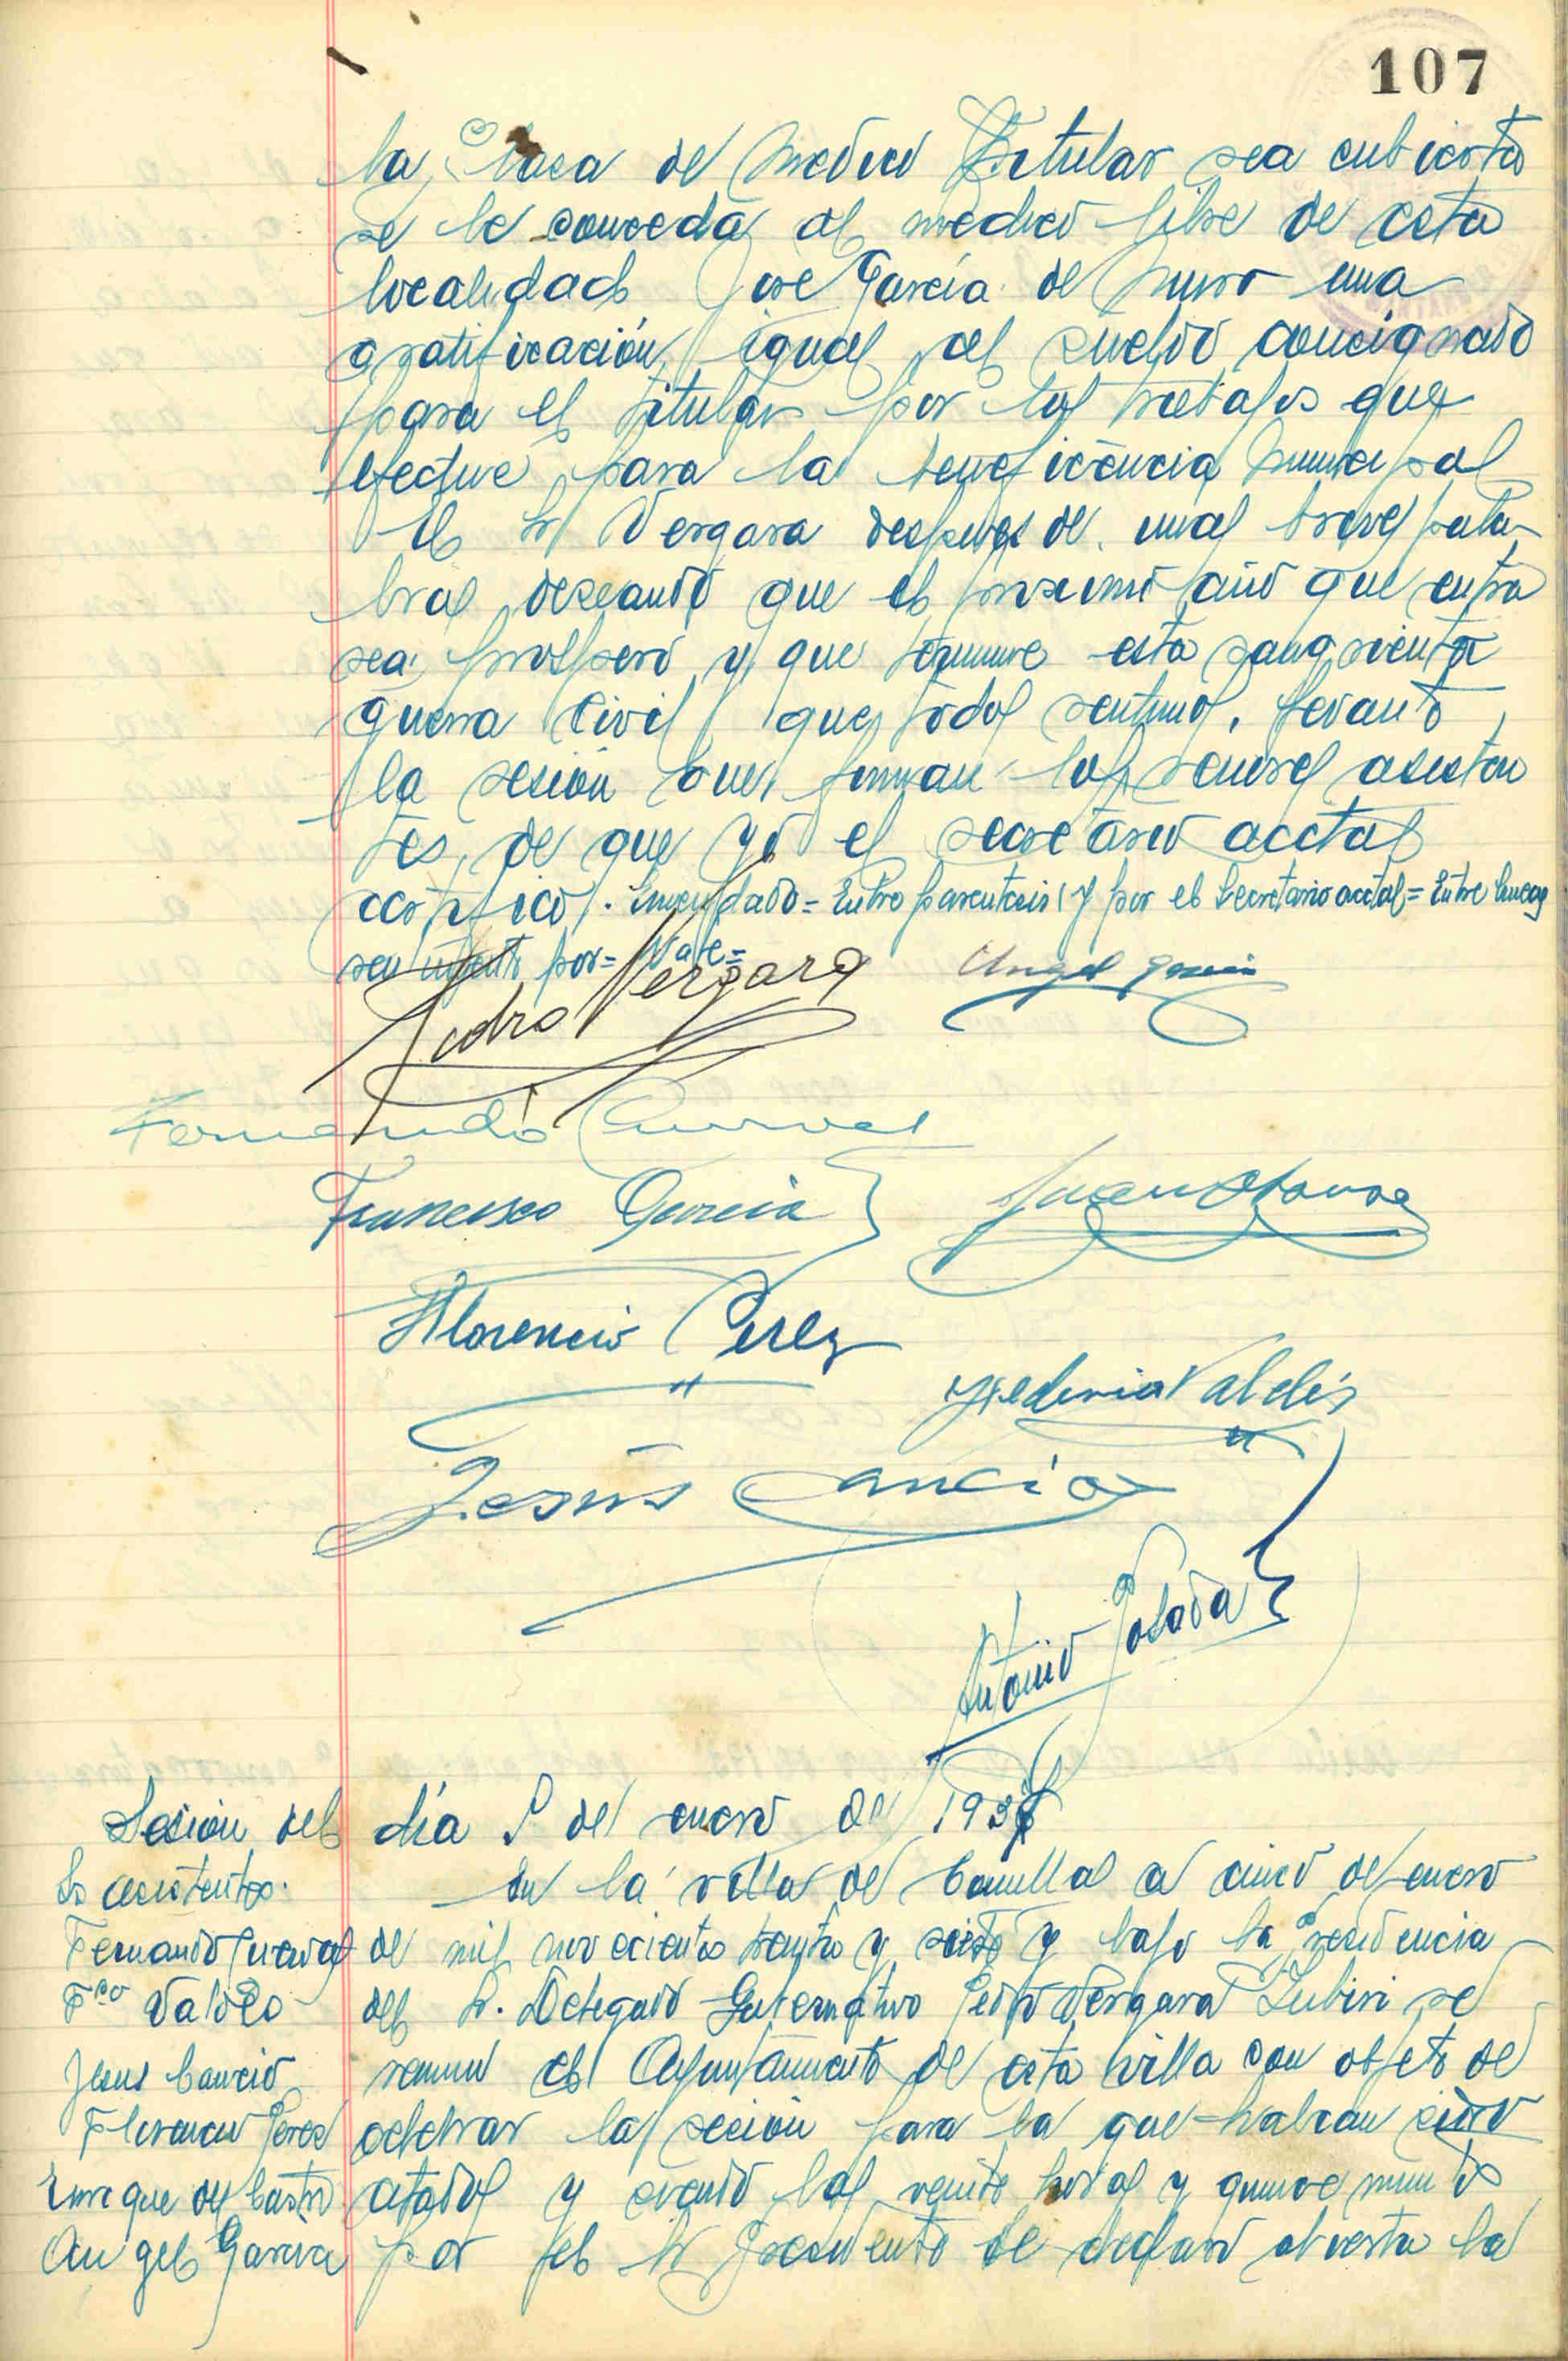 107
la Plaza de Medico Titular sea cubierta
se le conceda al medico libre de esta
localidad Jose García de Muro una
gratificación igual al sueldo concignado
para el titular por los trabajos que
efectue para la beneficencia Municipal
El Sr Vergara despues de unas breves pala-
bras deseando que el proximo año que entra
sea prospero y que termine esta sangrienta
guerra civil que todos sentimos, levantó
la sesión que firman los señores asisten
tes, de que yo el secretario acctal
certifico. Enmendado = Entre parentesis ( y por el Secretario acctal = Entre lineas
por = Vale =
Pedro Vergara Angel Garcia
Fernando Cuevas
Francisco Garcia
Florencio Perez
Valdés
Jesús Cancio
Antonio Posada
Sesión del día 5 de enero de 1937
Srs asistentes.
En la villa de Comillas a cinco de enero
Fernando Cuevas
de mil novecientos treinta y siete y bajo la Presidencia
Fco Valdés
del Sr. Delegado Gubernativo Pedro Vergara Zubiri se
Jesus Cancio
reunio el Ayuntamiento de esta villa con objeto de
Florencio Perez
celebrar la sesión para la que habian sido
Enrique de Castro
citados y siendo las veinte horas y quince minutos
Angel Garcia
por el Sr Presidente se declaro abierta la